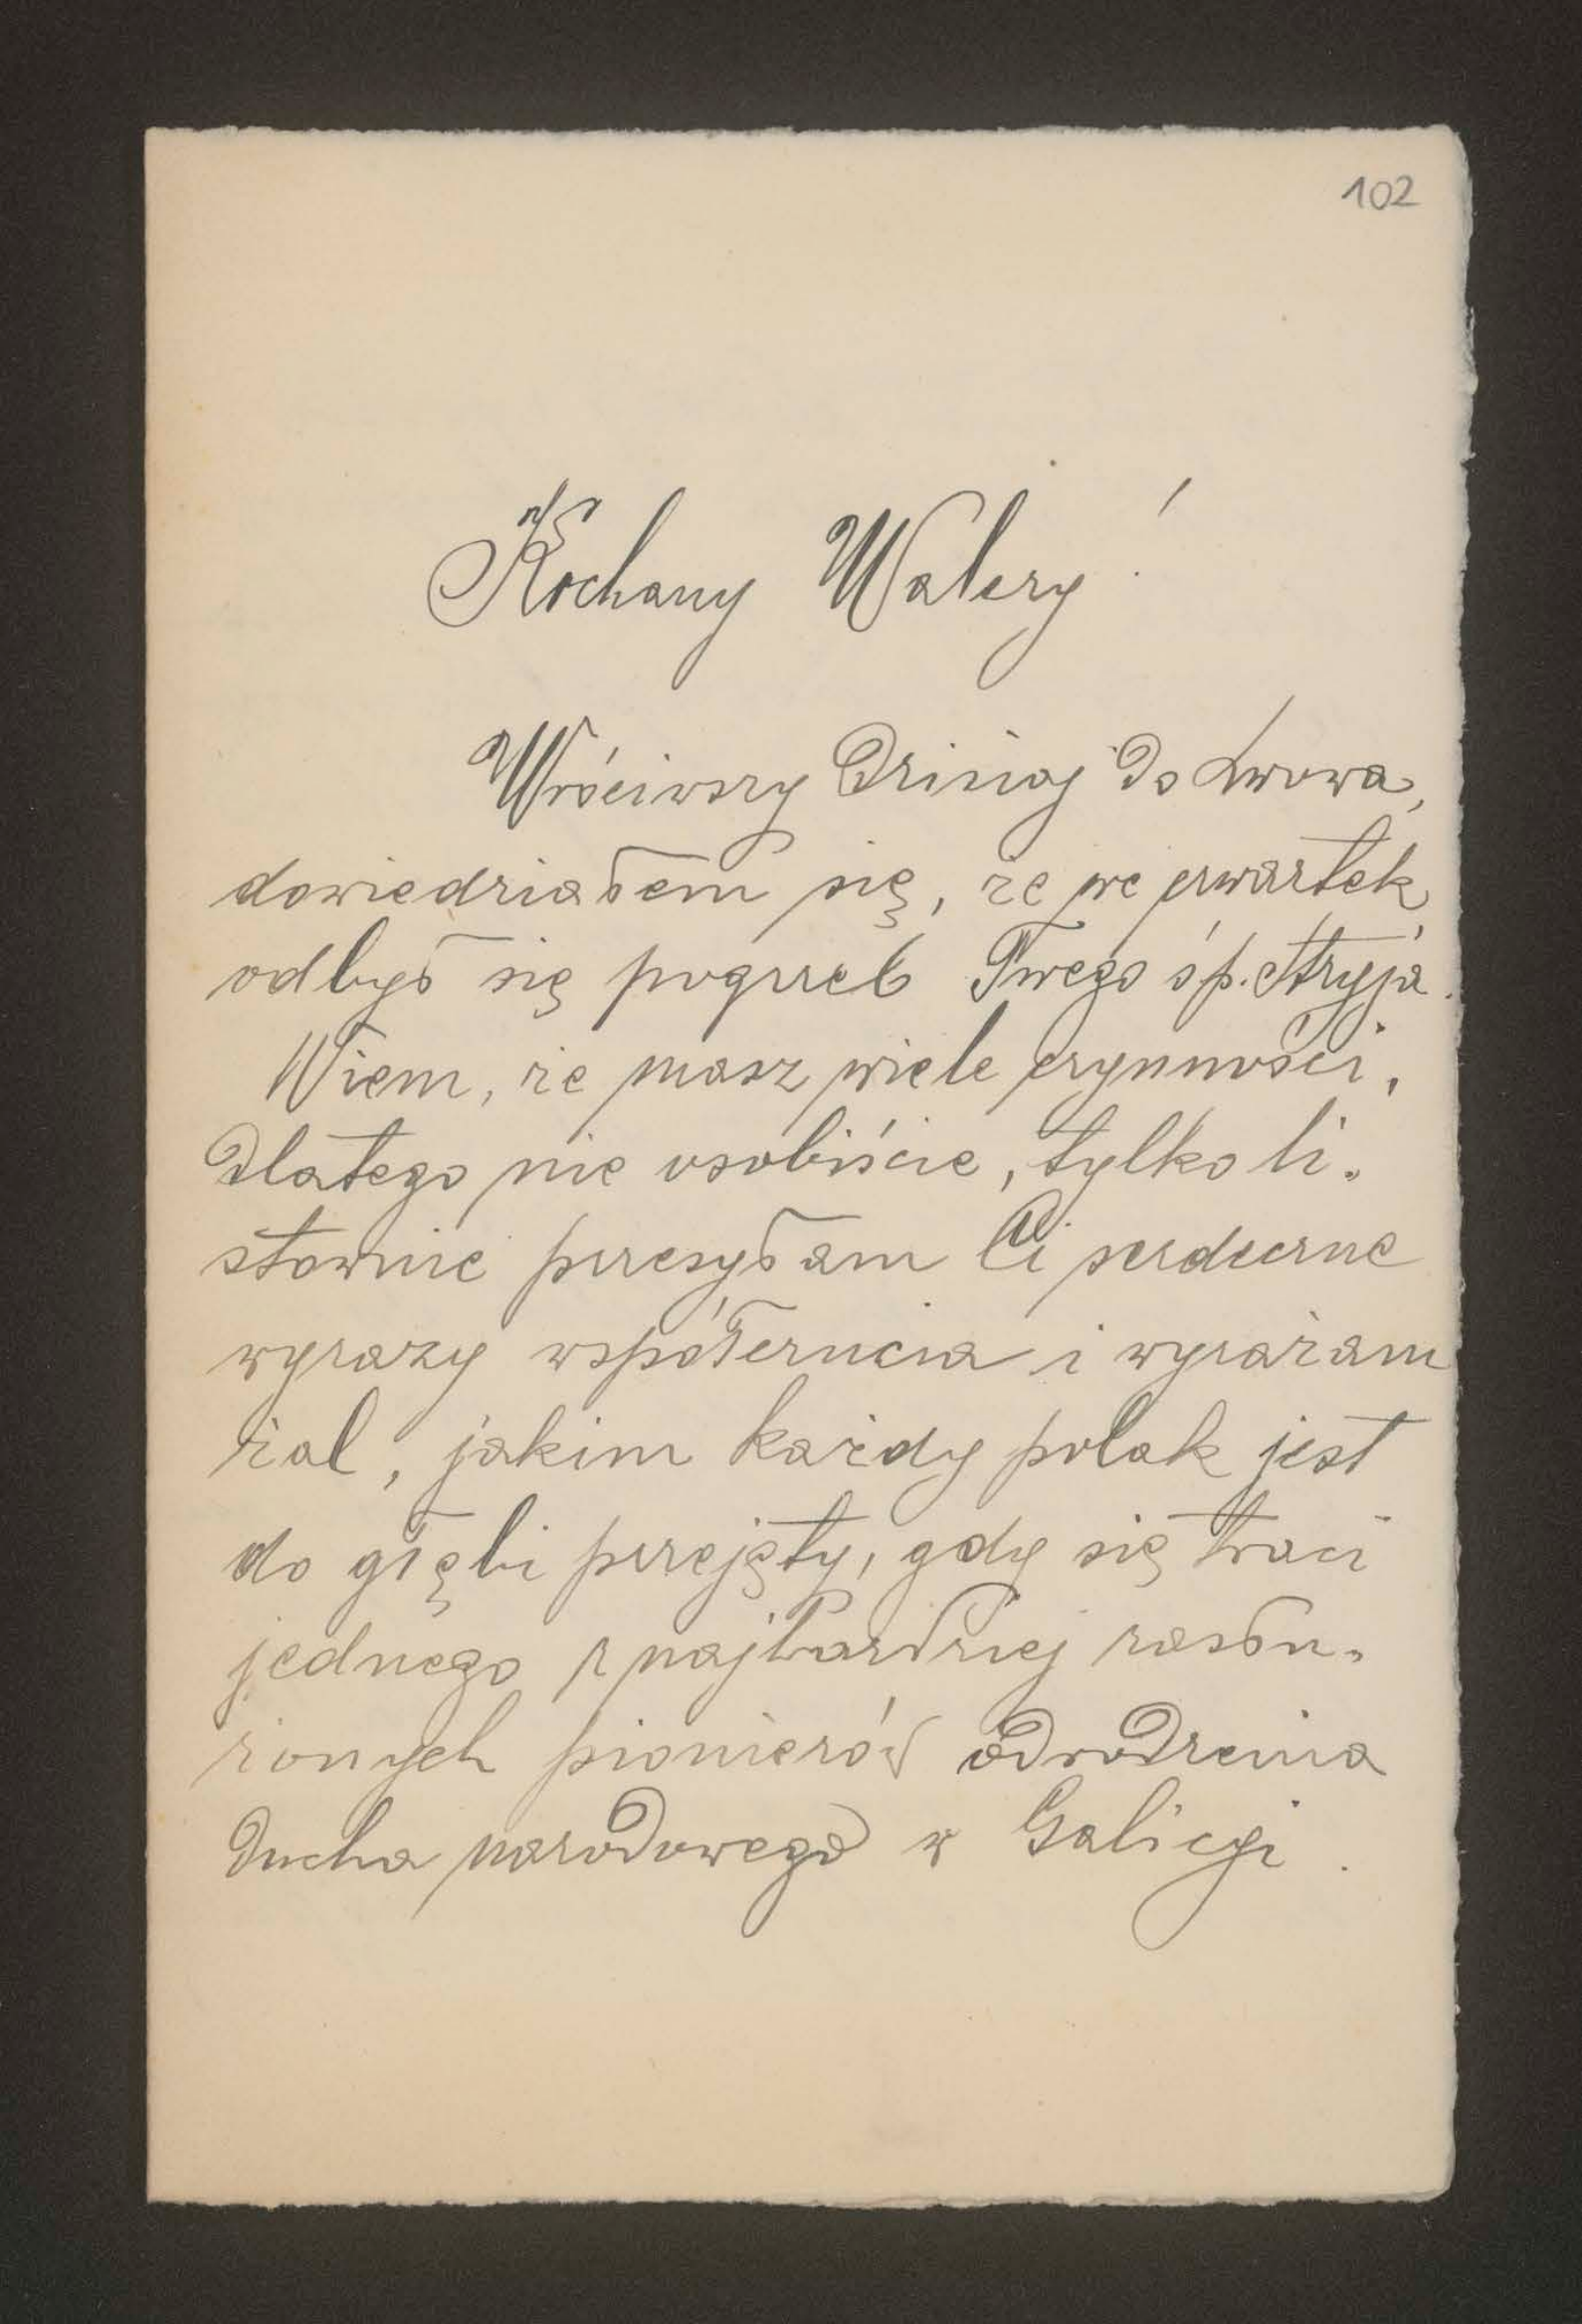 102
Kochany Walery!
Wróciwszy dzisiaj do Lwowa,
dowiedziałem się, że we czwartek
odbył się pogrzeb Twego śp. Stryja.
Wiem, że masz wiele czynności,
dlatego nie osobiście, tylko li-
stownie przesyłam Ci serdeczne
wyrazy współczucia i wyrażam
żal, jakim każdy polak jest
do głębi przejęty, gdy się traci
jednego z najbardziej zasłu-
żonych pionierów odrodzenia
ducha narodowego w Galicyi.